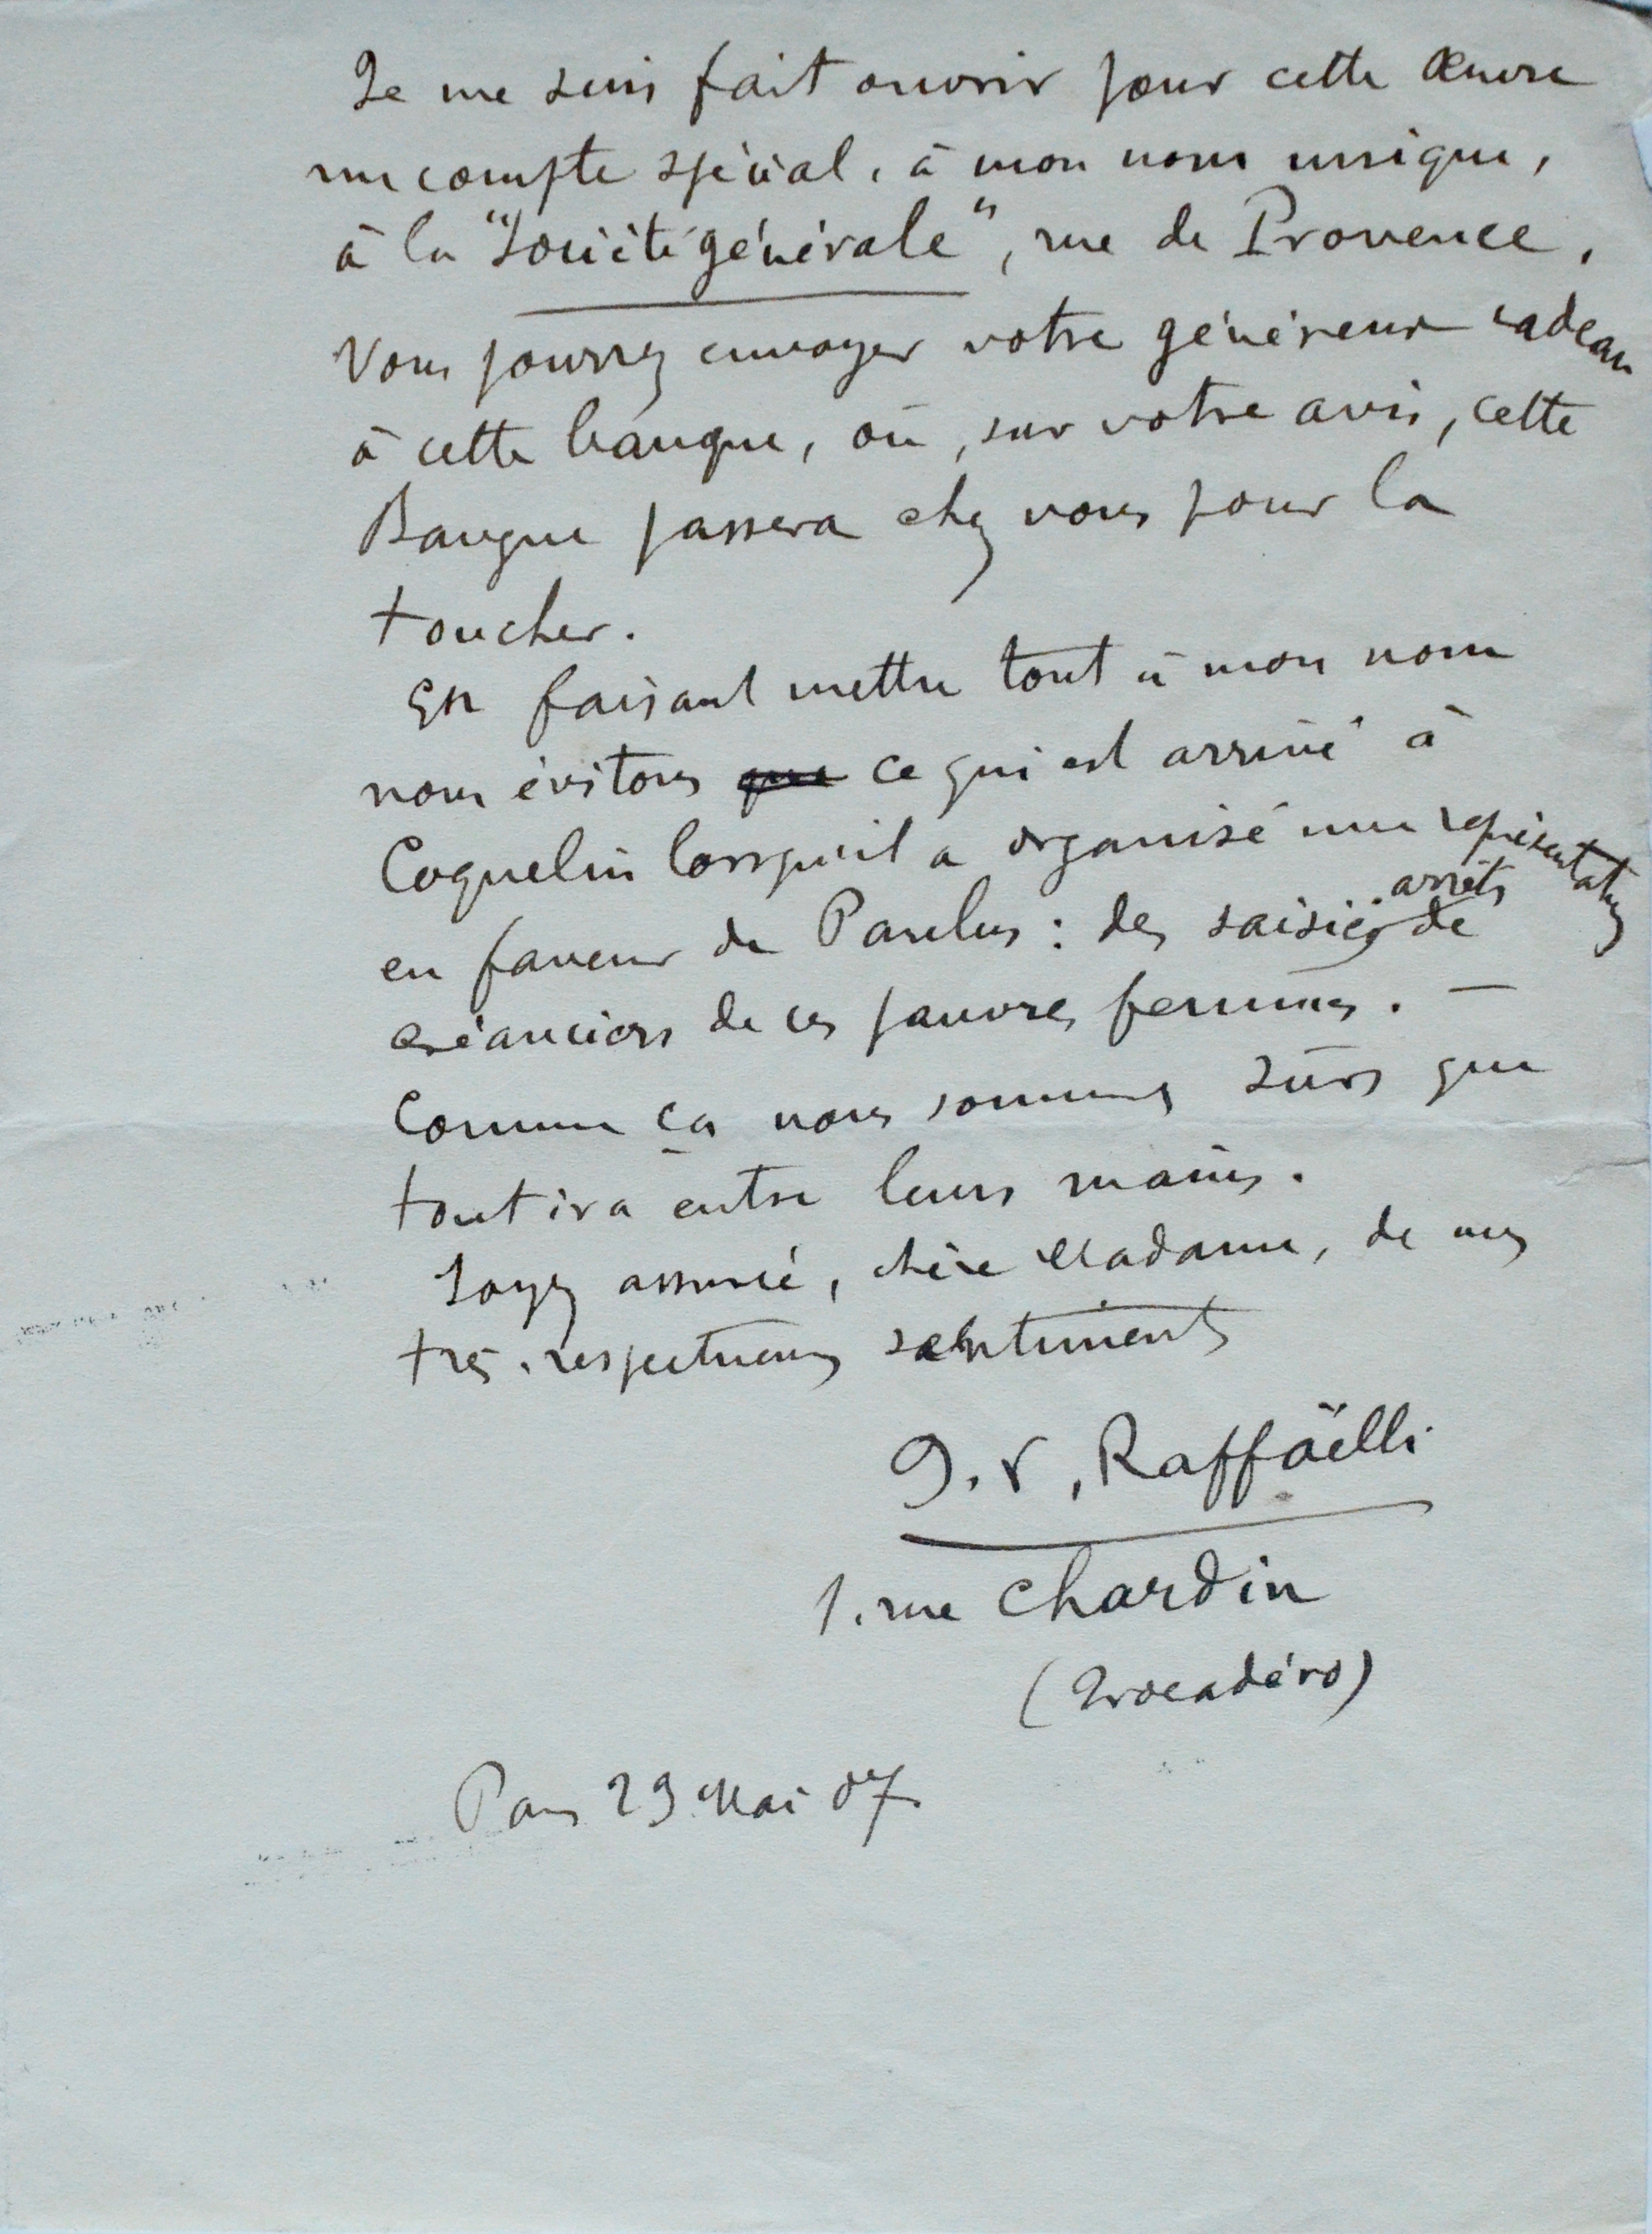 Je me suis fait ouvrir pour cette Œuvre
un compte spécial, à mon nom unique,
à la "Société générale", rue de Provence.
Vous pourrez envoyer votre généreux cadeau
à cette banque, où, sur votre avis, cette
Banque passera chez vous pour la
toucher.
En faisant mettre tout à mon nom
nous évitons que ce qui est arrivé à
Coquelin lorsqu'il a organisé une représentation
en faveur de : des saisies arrêts de
créanciers de ces pauvres femmes. —
Comme ça nous sommes sûrs que
tout ira entre leurs mains.
Soyez assuré, chère Madame, de mes
très respectueux sentiments
J. F. Raffaëlli
1. rue Chardin
(Trocadéro)
Paris 29 Mai 07